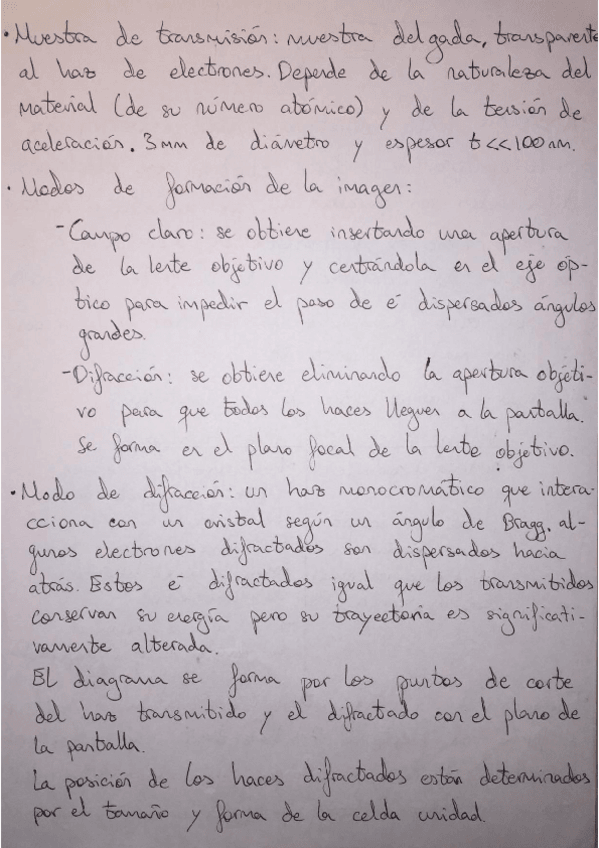 · Muestra de transmisión: muestra delgada, transparente
al haz de electrones. Depende de la naturaleza del
material (de su número atómico) y de la tensión de
aceleración. 3mm de diámetro y espesor t<<100nm.
· Modos de formación de la imagen:
- Campo claro: se obtiene insertando una apertura
de la lente objetivo y centrándola en el eje óp-
tico para impedir el paso de e⁻ dispersados ángulos
grandes.
- Difracción: se obtiene eliminando la apertura objeti-
vo para que todos los haces lleguen a la pantalla.
Se forma en el plano focal de la lente objetivo.
· Modo de difracción: un haz monocromático que intera-
cciona con un cristal según un ángulo de Bragg, al-
gunos electrones difractados son dispersados hacia
atrás. Estos e⁻ difractados igual que los transmitidos
conservan su energía pero su trayectoria es significati-
vamente alterada.
El diagrama se forma por los puntos de corte
del haz transmitido y el difractado con el plano de
la pantalla.
La posición de los haces difractados están determinados
por el tamaño y forma de la celda unidad.